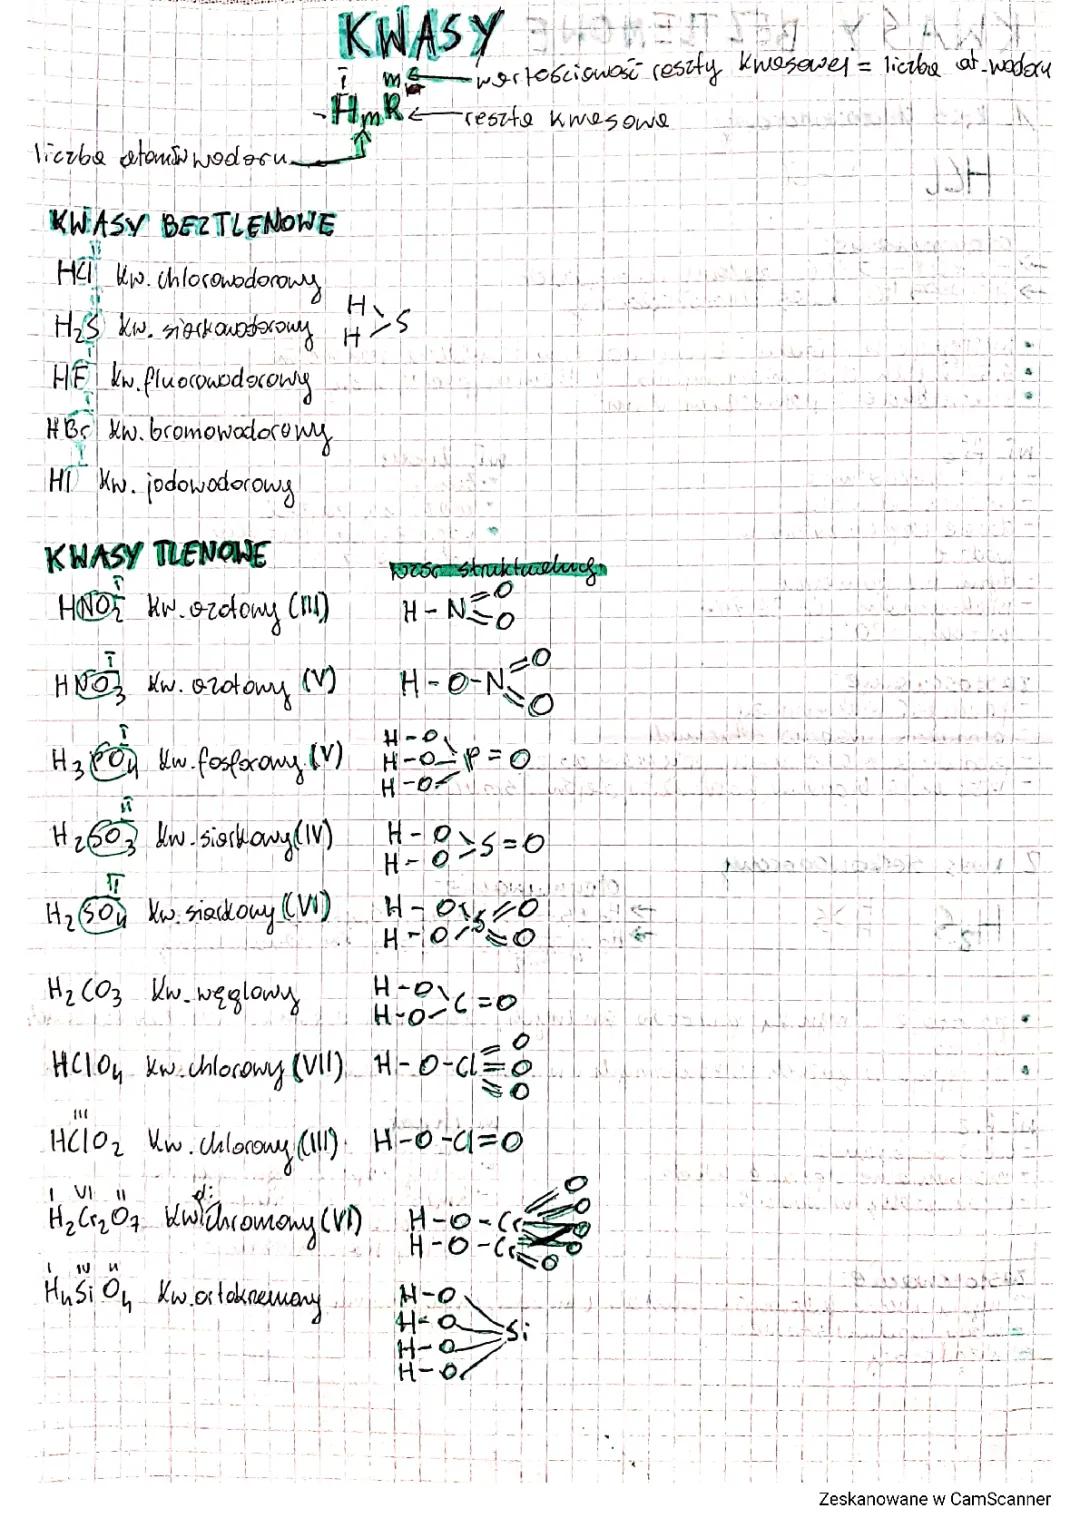 KWASY
I m wartościowość reszty kwasowej = liczba at. wodoru
HmR reszta kwasowa
liczba atomów wodoru
KWASY BEZTLENOWE
HCl kw. chlorowodorowy
H2S kw. siarkowodorowy H H S
HF kw. fluorowodorowy
HBr kw. bromowodorowy
HI kw. jodowodorowy
KWASY TLENOWE wzór strukturalny
HNO2 kw. azotowy (III) H-N=O =O
HNO3 kw. azotowy (V) H-O-N=O =O
H3PO4 kw. fosforowy (V) H-O H-O H-O P=O
H2SO3 kw. siarkowy (IV) H-O H-O S=O
H2SO4 kw. siarkowy (VI) H-O H-O S=O =O
H2CO3 kw. węglowy H-O H-O C=O
HClO4 kw. chlorowy (VII) H-O-Cl=O =O =O
HClO2 kw. chlorowy (III) H-O-Cl=O
H2Cr2O7 kw. dichromowy (VI) H-O-Cr H-O-Cr O O O O
H4SiO4 kw. ortokrzemowy H-O H-O H-O H-O Si
Zeskanowane w CamScanner